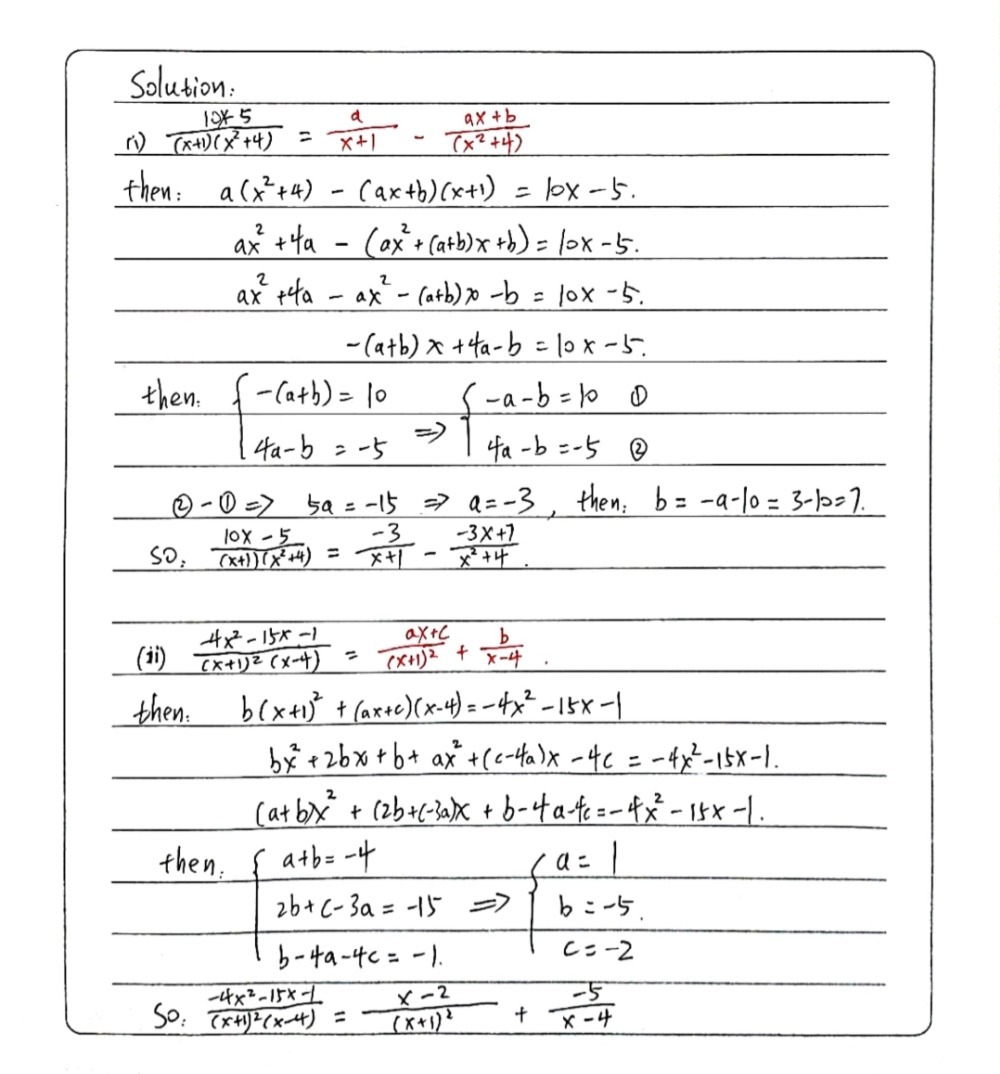 Solution:
(i) \frac{10x-5}{(x+1)(x^2+4)} = \frac{a}{x+1} - \frac{ax+b}{(x^2+4)}
then: a(x^2+4) - (ax+b)(x+1) = 10x-5.
ax^2+4a - (ax^2+(a+b)x+b) = 10x-5.
ax^2+4a - ax^2 - (a+b)x - b = 10x-5.
-(a+b)x + 4a-b = 10x-5.
then: { -(a+b) = 10 ⇒ { -a-b = 10 ①
4a-b = -5 4a-b = -5 ②
②-① ⇒ 5a = -15 ⇒ a = -3, then: b = -a-10 = 3-10 = 7.
so: \frac{10x-5}{(x+1)(x^2+4)} = \frac{-3}{x+1} - \frac{-3x+7}{x^2+4}.
(ii) \frac{-4x^2-15x-1}{(x+1)^2(x-4)} = \frac{ax+c}{(x+1)^2} + \frac{b}{x-4}.
then: b(x+1)^2 + (ax+c)(x-4) = -4x^2-15x-1
bx^2+2bx+b+ax^2+(c-4a)x-4c = -4x^2-15x-1.
(a+b)x^2 + (2b+c-3a)x + b-4a-4c = -4x^2-15x-1.
then: { a+b = -4 { a = 1
2b+c-3a = -15 ⇒ b = -5.
b-4a-4c = -1. c = -2
So: \frac{-4x^2-15x-1}{(x+1)^2(x-4)} = \frac{x-2}{(x+1)^2} + \frac{-5}{x-4}